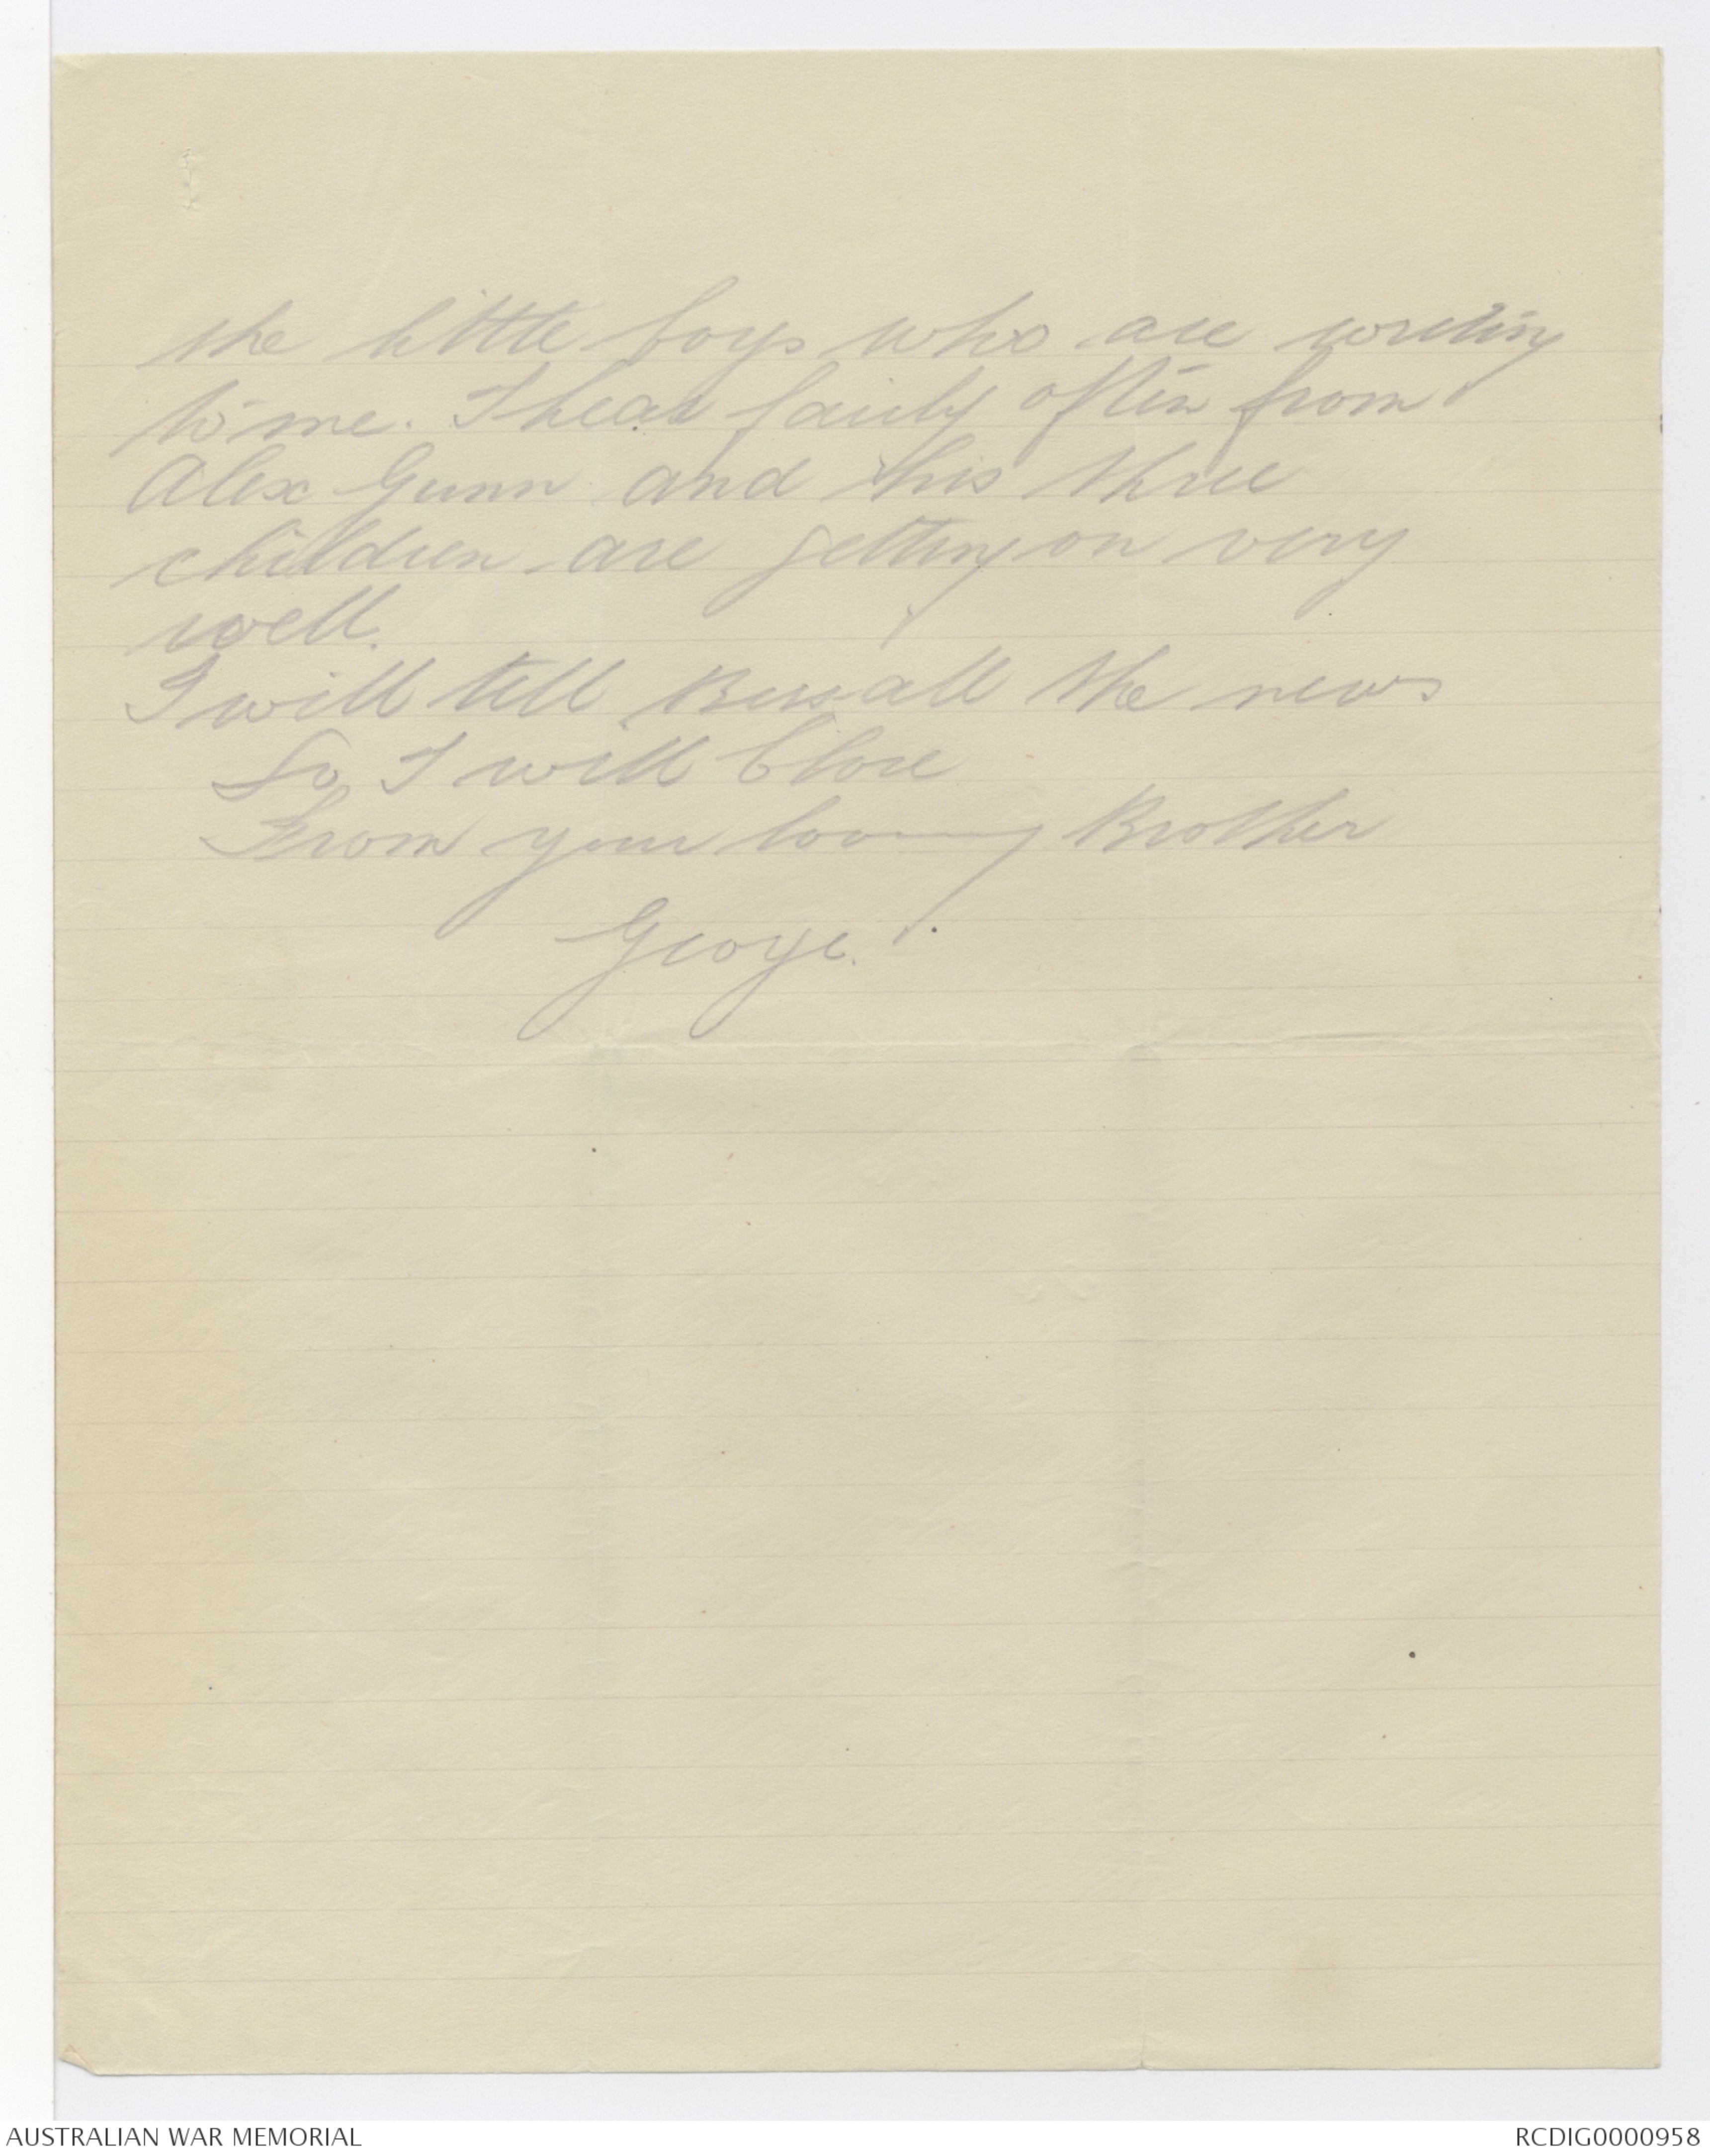 the little boys who are writing
to me. I hear fairly often from
Alex Gunn and his three
children are getting on very
well.
I will tell Bess all the news
So I will close
From your loving Brother
George.
AUSTRALIAN WAR MEMORIAL
RCDIG0000958